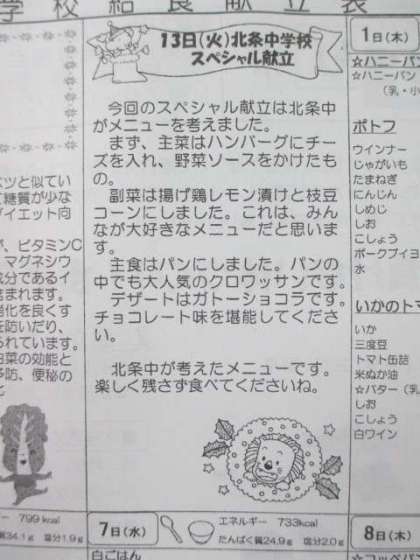 学校給食献立表
13日(火)北条中学校
スペシャル献立
今回のスペシャル献立は北条中
がメニューを考えました。
まず、主菜はハンバーグにチー
ズを入れ、野菜ソースをかけたも
の。
副菜は揚げ鶏レモン漬けと枝豆
コーンにしました。これは、みん
なが大好きなメニューだと思いま
す。
主食はパンにしました。パンの
中でも大人気のクロワッサンです。
デザートはガトーショコラです。
チョコレート味を堪能してくださ
い。
北条中が考えたメニューです。
楽しく残さず食べてくださいね。
ベツと似てい
て糖質が少な
ダイエット向
が、ビタミンC
マグネシウ
成分であるイ
含まれます。
消化を良くす
を防いだり、
られています。
白菜の効能と
予防、便秘の
799kcal
34.1g 塩分1.9g
7日(水)
エネルギー 733kcal
たんぱく質24.9g 塩分2.0g
白ごはん
1日(木)
☆ハニーパン
☆ハニーパン
(乳・小
ポトフ
ウインナー
じゃがいも
たまねぎ
にんじん
しめじ
しお
こしょう
ポークブイヨ
水
いかのトマ
いか
三度豆
トマト缶詰
米ぬか油
☆バター(乳
しお
こしょう
白ワイン
8日(木)
☆コッペパン